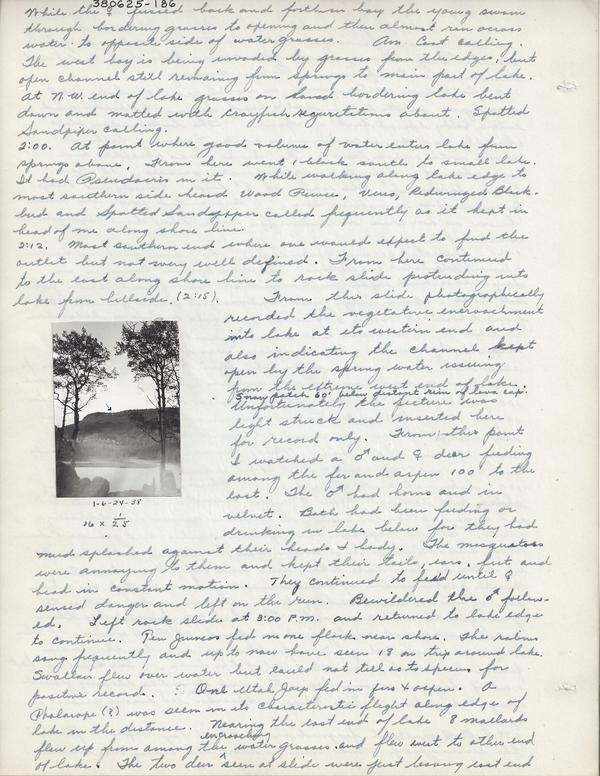 380625-186
While the ♀ fussed back and forth in bay the young swam
through bordering grasses to opening and then almost ran across
water to opposite side of water grasses. Am. Coot calling.
The west bay is being invaded by grasses from the edges, but
open channel still remaining from springs to main part of lake.
At N.W. end of lake grasses on land bordering lake bent
down and matted with crayfish about. Spotted
Sandpiper calling.
2:00. At point where good volume of water enters lake from
springs above. From here went 1 block south to small lake.
It had Pseudacris in it. While walking along lake edge to
most southern side heard Wood Pewee, Vireo, Redwinged Black-
bird and Spotted Sandpiper called frequently as it kept in
head of me along shore line.
2:12. Most southern end where one would expect to find the
outlet but not very well defined. From here continued
to the east along shore line to rock slide protruding into
lake from hillside. (2:15). From this slide photographically
recorded the vegetative encroachment
into lake at its western end and
also indicating the channel kept
open by the spring water issuing
from the extreme west end of lake.
Snow patch 60' below distant rim of lava cap.
Unfortunately the picture was
light struck and inserted here
for record only. From this point
I watched a ♂ and ♀ deer feeding
among the fir and aspen 100' to the
east. The ♂ had horns and in
velvet. Both had been feeding or
drinking in lake below for they had
1-6-24-38
16 x 1/25
mud splashed against their heads & body. The mosquitoes
were annoying to them and kept their tails, ears, feet and
head in constant motion. They continued to feed until ♀
sensed danger and left on the run. Bewildered the ♂ follow-
ed. Left rock slide at 3:00 P.M. and returned to lake edge
to continue. Few Juncos fed in one flock near shore. The robins
sang frequently and up to now have seen 18 on trip around lake.
Swallow flew over water but could not tell as to species for
positive record. One Utah Jay fed in firs & aspen. A
Phalarope (?) was seen in its characteristic flight along edge of
lake in the distance. Nearing the east end of lake 8 mallards
flew up from among the encroaching water grasses and flew west to other end
of lake. The two deer seen at slide were just leaving east end